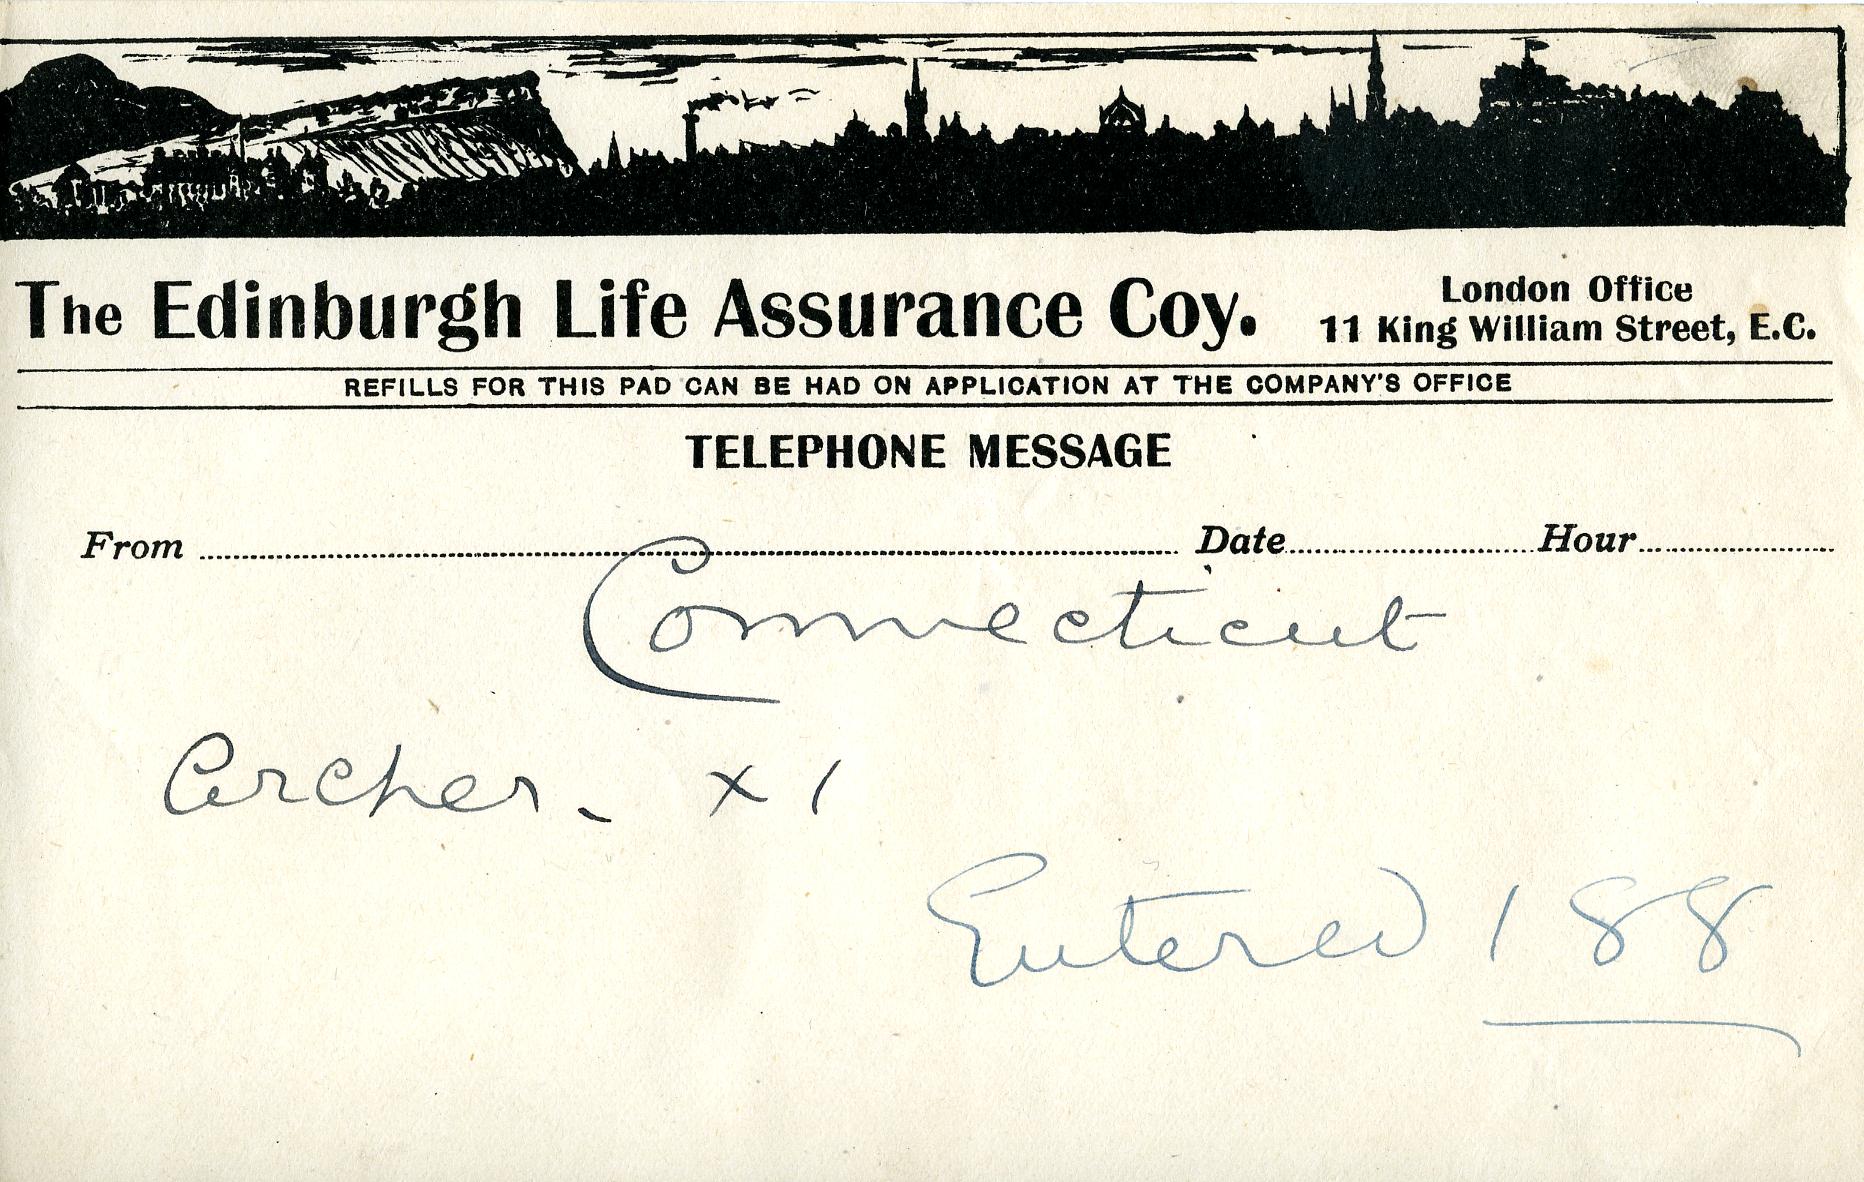 The Edinburgh Life Assurance Coy.
London Office
11 King William Street, E.C.
REFILLS FOR THIS PAD CAN BE HAD ON APPLICATION AT THE COMPANY'S OFFICE
TELEPHONE MESSAGE
From Date Hour
Connecticut
Archer. x 1
Entered 188